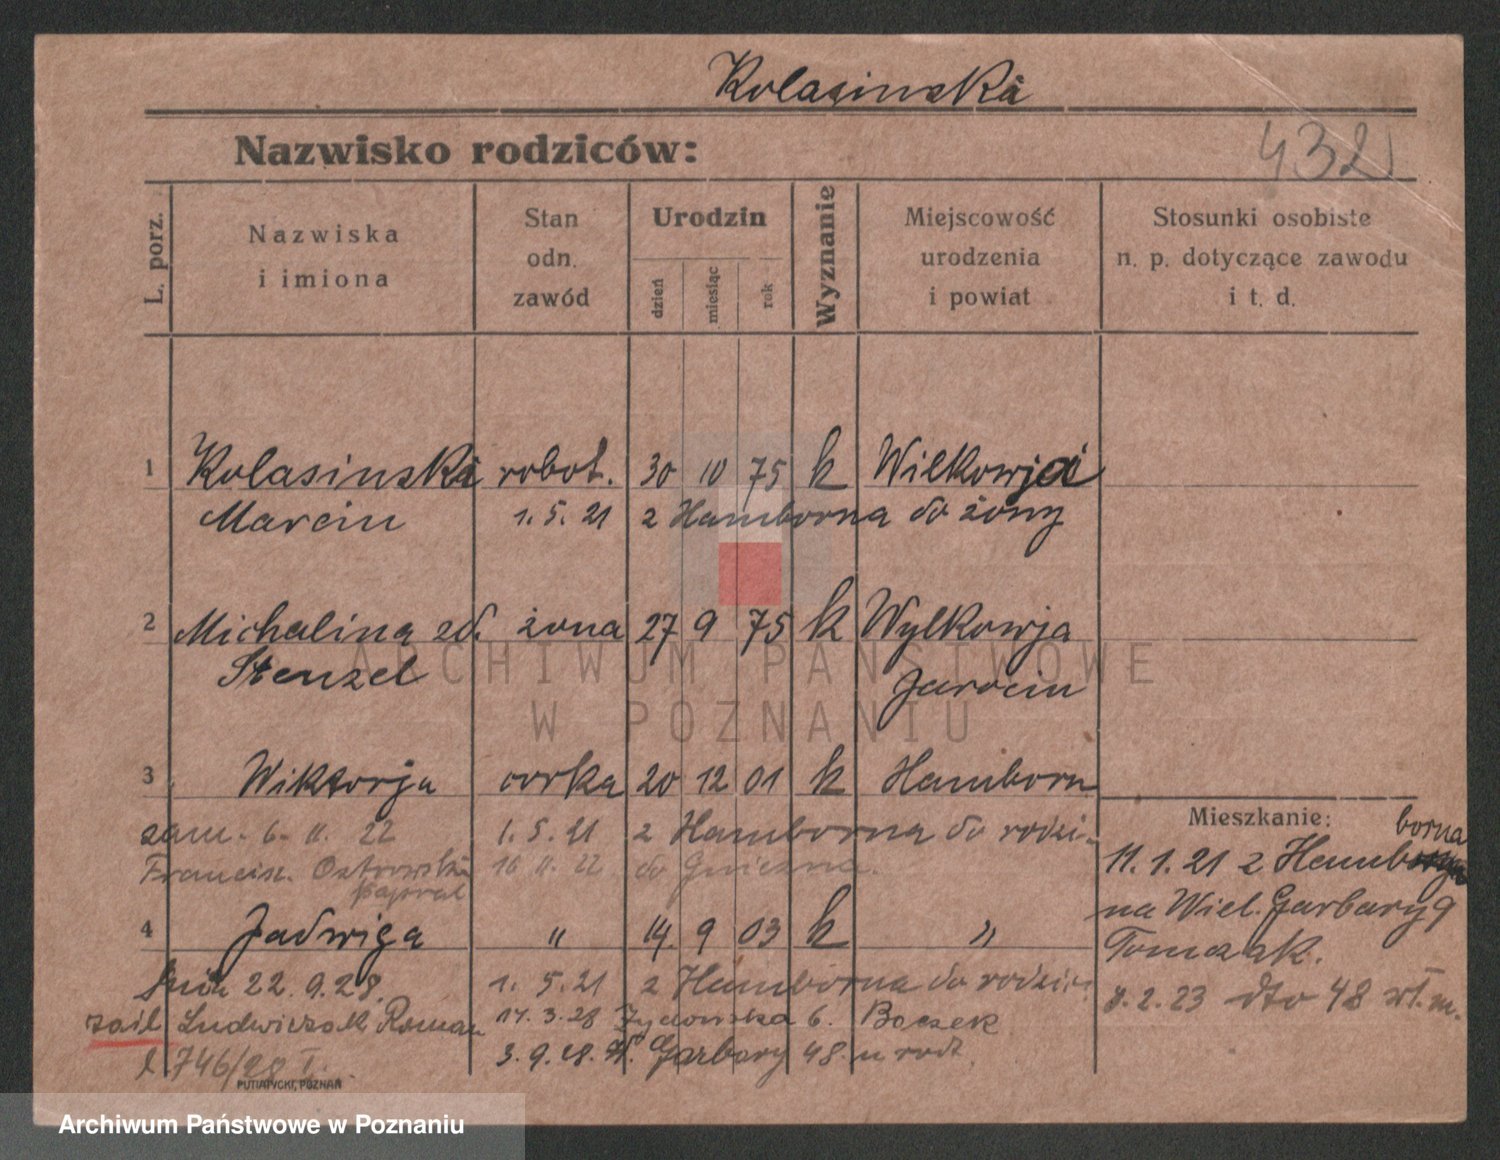 Kolasinski
Nazwisko rodziców:
432
L. porz.
Nazwiska
i imiona
Stan
odn.
zawód
Urodzin
dzień
miesiąc
rok
Wyznanie
Miejscowość
urodzenia
i powiat
Stosunki osobiste
n. p. dotyczące zawodu
i t. d.
1 Kolasinski robot. 30 10 75 k Wilkowja
Marcin 1. 5. 21 z Hamborna do żony
2 Michalina zd. żona 27 9 75 k Wylkowja
Stenzel Jarocin
ARCHIWUM PAŃSTWOWE
W POZNANIU
3 Wiktorja corka 20 12 01 k Hamborn
zam. 6. 11. 22 1. 5. 21 z Hamborna do rodzi.
Francisz. Ostrowski 16 11. 22 do Gniezna.
kapral
4 Jadwiga " 14 9 03 k "
22. 9. 28. 1. 5. 21 z Hamborna do rodzic.
zaśl Ludwiczak Roman 14. 3. 28 Żydowska 6. Boczek
746/28 I. 3. 9. 28. W. Garbary 48. u rodz.
Mieszkanie:
11. 1. 21 z Hamborna
na Wiel. Garbary 9
Tomczak.
8. 2. 23 dto 48 wł. m.
PUTIATYCKI, POZNAŃ
Archiwum Państwowe w Poznaniu